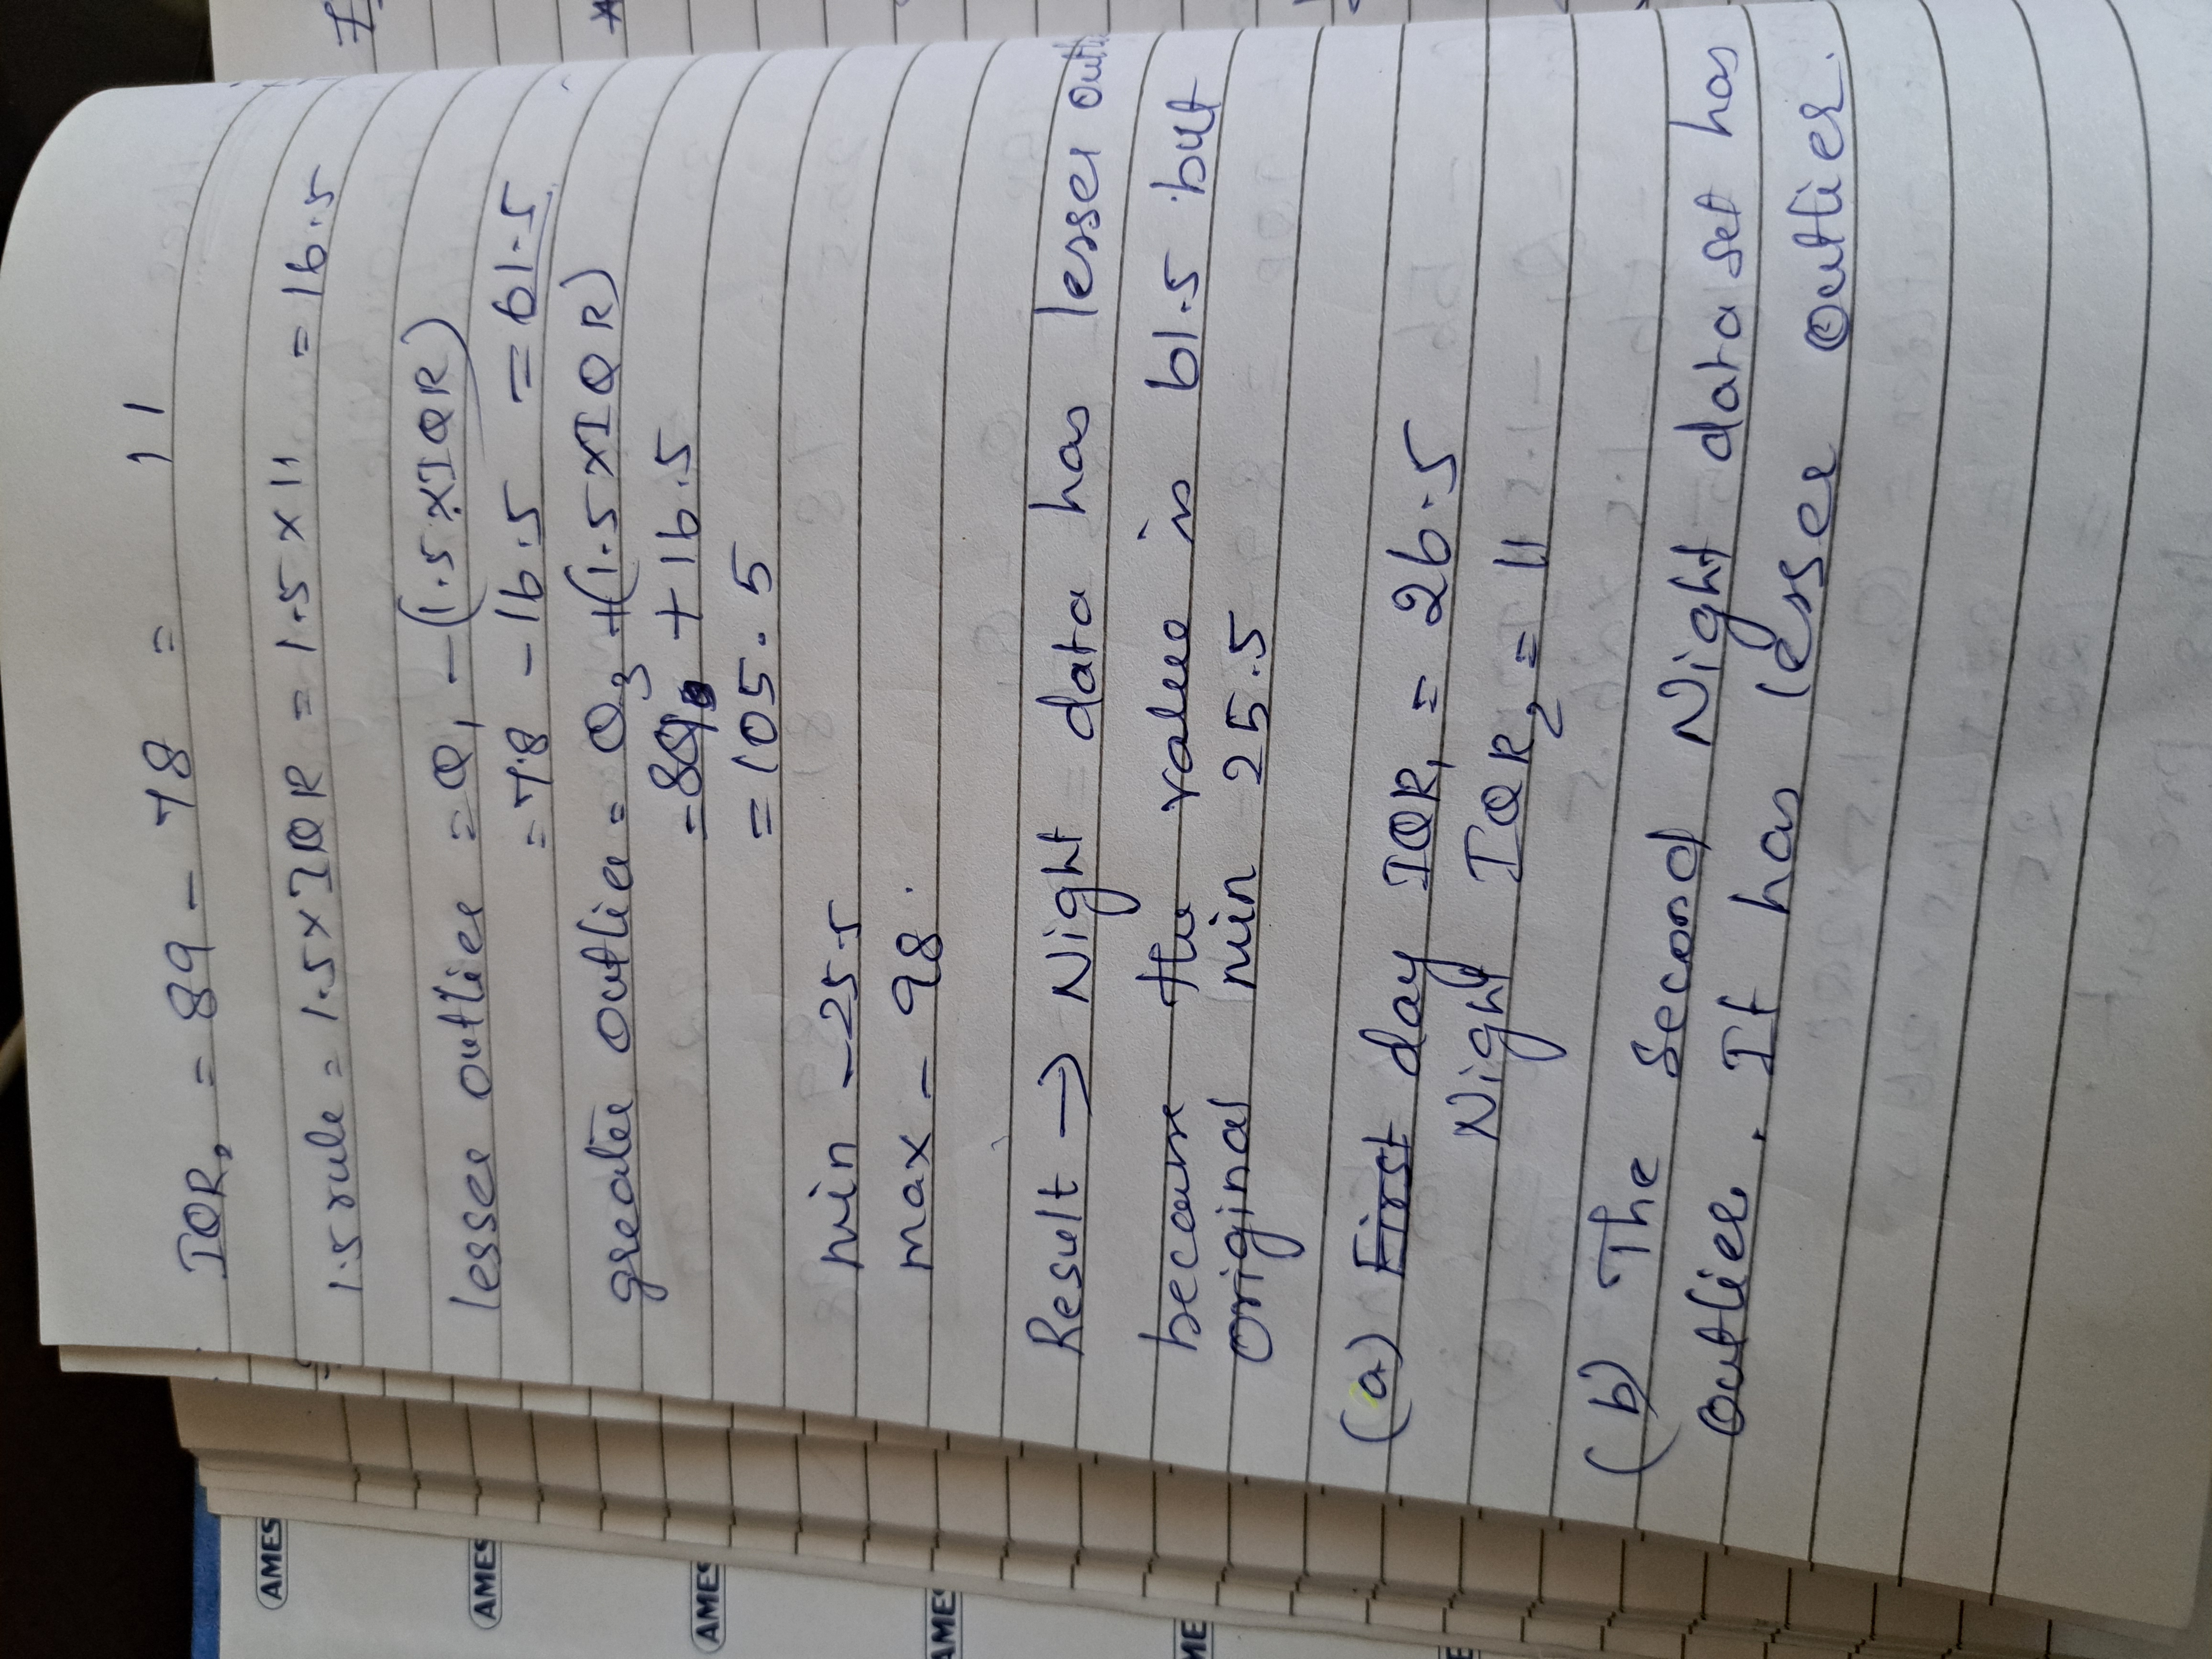 IQR₂ = 89 - 78 = 11
1.5 rule = 1.5 × IQR = 1.5 × 11 = 16.5
lesser outlier = Q₁ - (1.5 × IQR)
= 78 - 16.5 = 61.5
greater outlier = Q₃ + (1.5 × IQR)
= 89 + 16.5
= 105.5
min - 25.5
max - 98
Result → Night data has lesser
because the value is 61.5 but
original min 25.5
(a) First day IQR₁ = 26.5
Night IQR₂ = 11
(b) The Second Night data set has
outlier. It has lesser outlier.
AMES
AMES
AMES
AMES